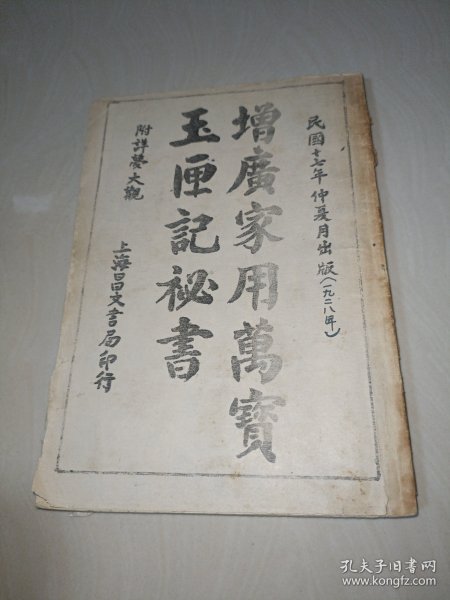 民國十七年仲夏月出版(一九二八年)
增廣家用萬寶
玉匣記祕書
附詳夢大觀
上海昌文書局印行
孔夫子旧书网
www.kongfz.com